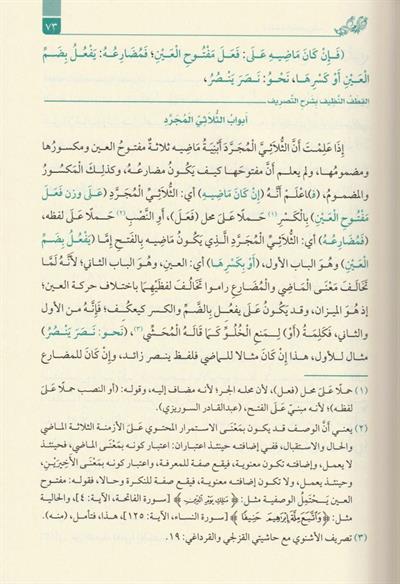 ٧٣
(فَإِنْ كَانَ مَاضِيهِ عَلَى: فَعَلَ مَفْتُوحِ الْعَيْنِ؛ فَمُضَارِعُهُ: يَفْعُلُ بِضَمِّ
الْعَيْنِ أَوْ كَسْرِهَا، نَحْوُ: نَصَرَ يَنْصُرُ،
القطف النَّظيف بشرح التصريف
أبوابُ الثُّلاثِيِّ المُجَرَّدِ
إِذَا عَلِمْتَ أَنَّ الثُّلَاثِيَّ الْمُجَرَّدَ أَبْنِيَةُ مَاضِيهِ ثلاثةٌ مفتوحُ العين ومكسورُها
ومضمومُها، ولم يعلم أنَّ مفتوحَها كيف يَكُونُ مضارعُهُ، وكذلك الْمَكسُورُ
والمضموم، (فَـ)اعْلَمْ أَنَّهُ (إِنْ كَانَ مَاضِيهِ) أي: الثُّلَاثِيِّ الْمُجَرَّدِ (عَلَى وزن فَعَلَ
مَفْتُوحِ الْعَيْنِ) بِالْكَسْرِ(١) حَمْلًا عَلَ محل (فَعَلَ)، أو النَّصْبِ(٢) حَملًا عَلَ لفظه،
(فَمُضَارِعُهُ) أي: الثُّلَاثِيِّ الْمُجَرَّدِ الَّذِي يَكُونُ مَاضِيه بِالفَتحِ إِمَّا (يَفْعُلُ بِضَمِّ
الْعَيْنِ) وهُوَ الباب الأول، (أَوْ بِكَسْرِهَا) أي: العين، وهُوَ الباب الثاني؛ لأنَّهُ لَمَّا
تَخَالَفَ مَعْنَى الْمَاضِي وَالْمُضَارِعِ راموا تَخَالُفَ لفظَيهما باختلاف حركة العين؛
إذ هُوَ الميزان، وقد يَكُونُ عَلَى يفعل بِالضَّمِّ والكسر كيعكف؛ فَإِنَّهُ من الأول
والثاني، فَكَلِمَةُ (أَوْ) لِمَنعِ الْخُلُوِّ كَمَا قَالَهُ الْمُحَشِّي(٣)، (نَحو: نَصَرَ يَنْصُرُ)
مثال للأول، هذا إِنْ كَانَ مثالا للماضي فلفظ ينصر زائد، وإن كَانَ للمضارع
(١) حملًا عَلَ محل (فعل)، لأن محله الجر؛ لأنه مضاف إليه، وقوله: (أو النصب حملًا عَلَ
لفظه)؛ لأنه مبنيّ عَلَ الفتح، (عبدالقادر السوريزي).
(٢) يعني أَنَّ الوصف قد يكون بمعنى الاستمرار المحتوي عَلَى الأزمنة الثلاثة الماضي
والحال والاستقبال، ففي إضافته حينئذ اعتباران: اعتبار كونه بمَعْنَى الماضي، فحينئذ
لا يعمل، وإضافته تكون معنوية، فيقع صفة للمعرفة، واعتبار كونه بمَعْنَى الأخِيرَيْنِ،
وحينئذ يعمل، ولا تكون إضافته معنوية، فيقع صفة للنكرة وحالا، فقوله: مفتوح
العين يَحْتَمِلُ الوصفية مثل: ﴿مَٰلِكِ يَوْمِ ٱلدِّينِ﴾ [سورة الفاتحة، الآية: ٤]، والحالية
مثل: ﴿وَٱتَّبَعَ مِلَّةَ إِبْرَٰهِيمَ حَنِيفًا﴾ [سورة النساء، الآية: ١٢٥]، هذا، فتأمل، (منه).
(٣) تصريف الأشنوي مع حاشيتي القزلجي والقرداغي: ١٩.